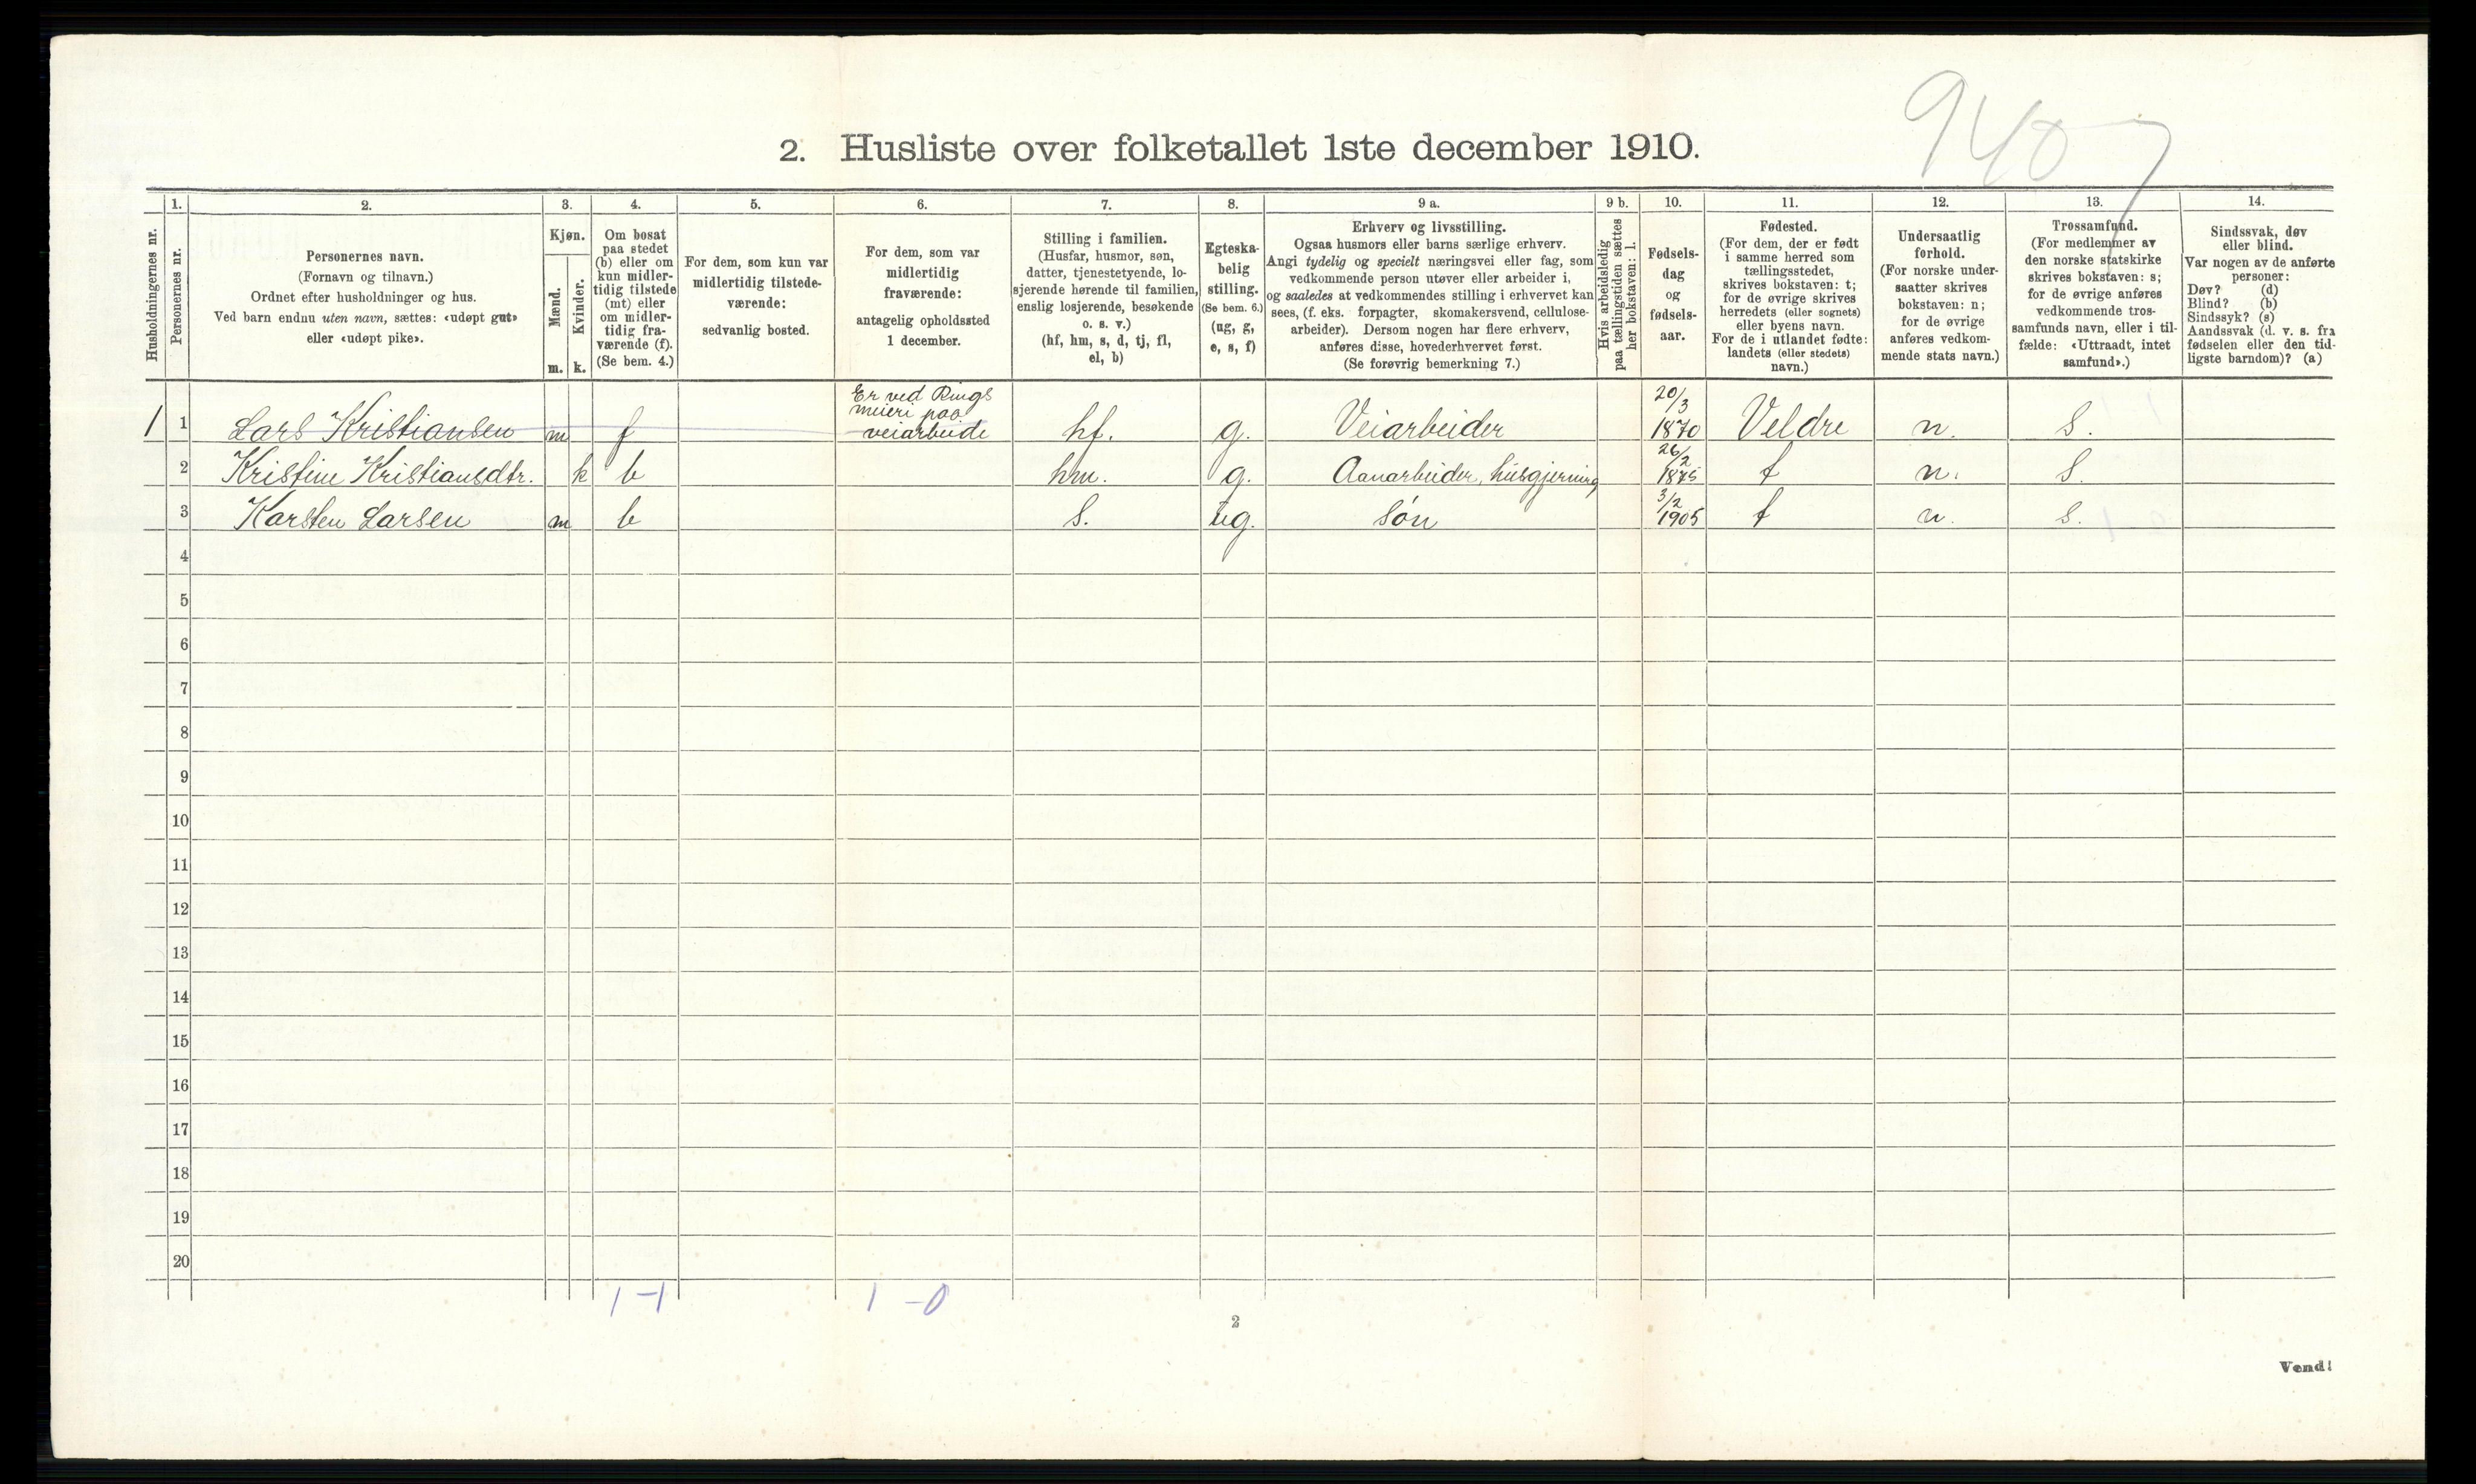 9407
2. Husliste over folketallet 1ste december 1910.
Husholdningernes nr.
1.
Personernes nr.
2.
Personernes navn.
(Fornavn og tilnavn.)
Ordnet efter husholdninger og hus.
Ved barn endnu uten navn, sættes: «udøpt gut»
eller «udøpt pike».
3.
Kjøn.
Mænd.
m.
Kvinder.
k.
4.
Om bosat
paa stedet
(b) eller om
kun midler-
tidig tilstede
(mt) eller
om midler-
tidig fra-
værende (f).
(Se bem. 4.)
5.
For dem, som kun var
midlertidig tilstede-
værende:
sedvanlig bosted.
6.
For dem, som var
midlertidig
fraværende:
antagelig opholdssted
1 december.
7.
Stilling i familien.
(Husfar, husmor, søn,
datter, tjenestetyende, lo-
sjerende hørende til familien,
enslig losjerende, besøkende
o. s. v.)
(hf, hm, s, d, tj, fl,
el, b)
8.
Egteska-
belig
stilling.
(Se bem. 6.)
(ug, g,
e, s, f)
9 a.
Erhverv og livsstilling.
Ogsaa husmors eller barns særlige erhverv.
Angi tydelig og specielt næringsvei eller fag, som
vedkommende person utøver eller arbeider i,
og saaledes at vedkommendes stilling i erhvervet kan
sees, (f. eks. forpagter, skomakersvend, cellulose-
arbeider). Dersom nogen har flere erhverv,
anføres disse, hovederhvervet først.
(Se forøvrig bemerkning 7.)
9 b.
Hvis arbeidsledig
paa tællingstiden sættes
her bokstaven: l.
10.
Fødsels-
dag
og
fødsels-
aar.
11.
Fødested.
(For dem, der er født
i samme herred som
tællingsstedet,
skrives bokstaven: t;
for de øvrige skrives
herredets (eller sognets)
eller byens navn.
For de i utlandet fødte:
landets (eller stedets)
navn.)
12.
Undersaatlig
forhold.
(For norske under-
saatter skrives
bokstaven: n;
for de øvrige
anføres vedkom-
mende stats navn.)
13.
Trossamfund.
(For medlemmer av
den norske statskirke
skrives bokstaven: s;
for de øvrige anføres
vedkommende tros-
samfunds navn, eller i til-
fælde: «Uttraadt, intet
samfund».)
14.
Sindssvak, døv
eller blind.
Var nogen av de anførte
personer:
Døv? (d)
Blind? (b)
Sindssyk? (s)
Aandssvak (d. v. s. fra
fødselen eller den tid-
ligste barndom)? (a)
1 1 Lars Kristiansen m f Er ved Rings meieri paa veiarbeide hf. g. Veiarbeider 20/3 1870 Veldre n. S.
2 Kristine Kristiansdtr. k b hm. g. Aanarbeider, husgjerning 26/2 1875 t n. S.
3 Karsten Larsen m b S. ug. søn 3/2 1905 t n. S.
4
5
6
7
8
9
10
11
12
13
14
15
16
17
18
19
20
1-1 1-0
2
Vend!